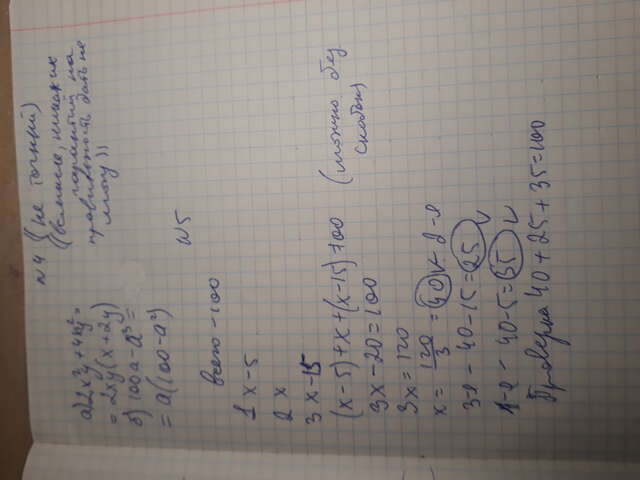 №4 (не точный)
(всмысле, никаких
гарантий на
правильность дать не
могу))
а) 2x²y + 4xy² =
= 2xy(x + 2y)
б) 100a - a³ =
= a(100 - a²)
№5
всего - 100
1 x - 5
2 x
3 x - 15
(x - 5) + x + (x - 15) = 100 (можно без
скобок)
3x - 20 = 100
3x = 120
x = 120/3 = 40 - 2-е
3-е - 40 - 15 = 25
1-е - 40 - 5 = 35
Проверка 40 + 25 + 35 = 100